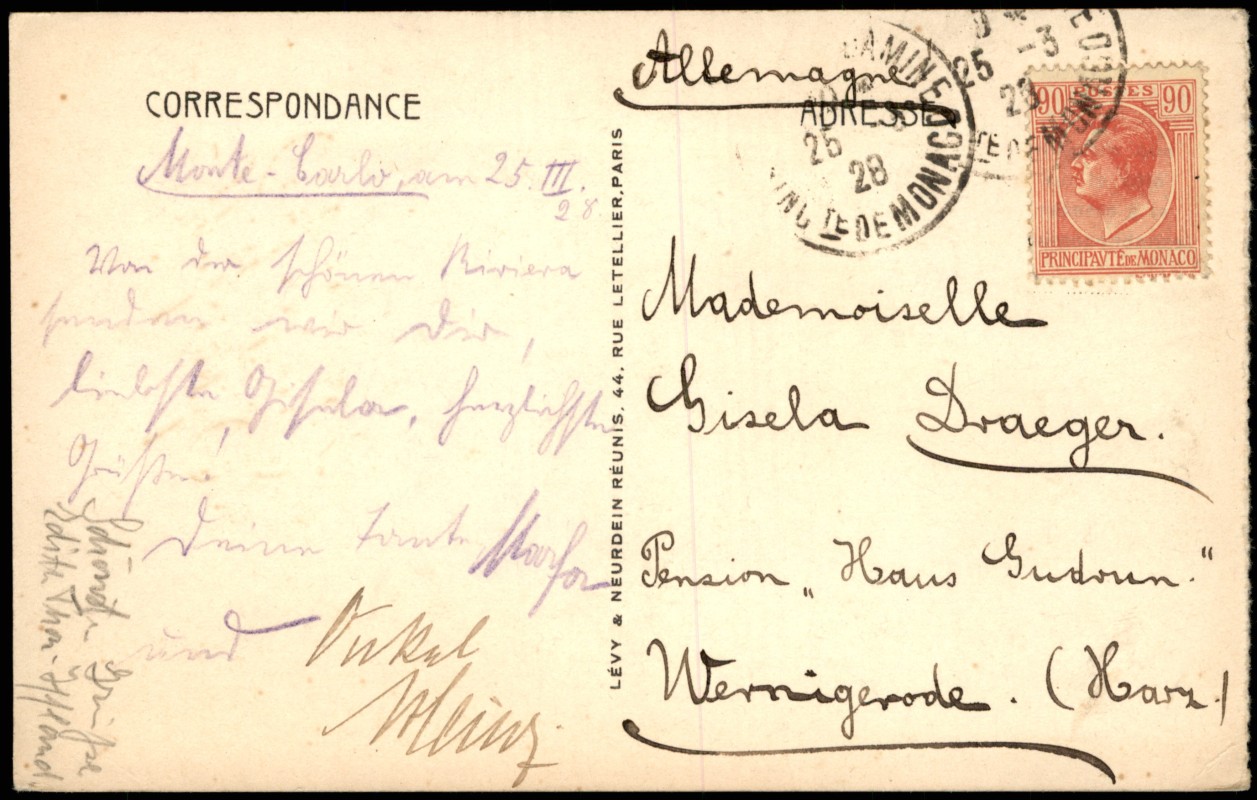 CORRESPONDANCE
Monte-Carlo, am 25. III.
28.
Von der schönen Riviera
senden wir Dir,
liebste Gisela, herzlichste
Grüsse!
Deine Tante
und Onkel
Heinz.
Schönste Grüsse
Edith
Allemagne
ADRESSE
Mademoiselle
Gisela Draeger.
Pension „Haus Gudrun."
Wernigerode. (Harz.)
LÉVY & NEURDEIN RÉUNIS, 44, RUE LETELLIER, PARIS
25
28
TE DE MONACO
25 -3
TE DE MONACO
90 POSTES 90
PRINCIPAVTÉ DE MONACO